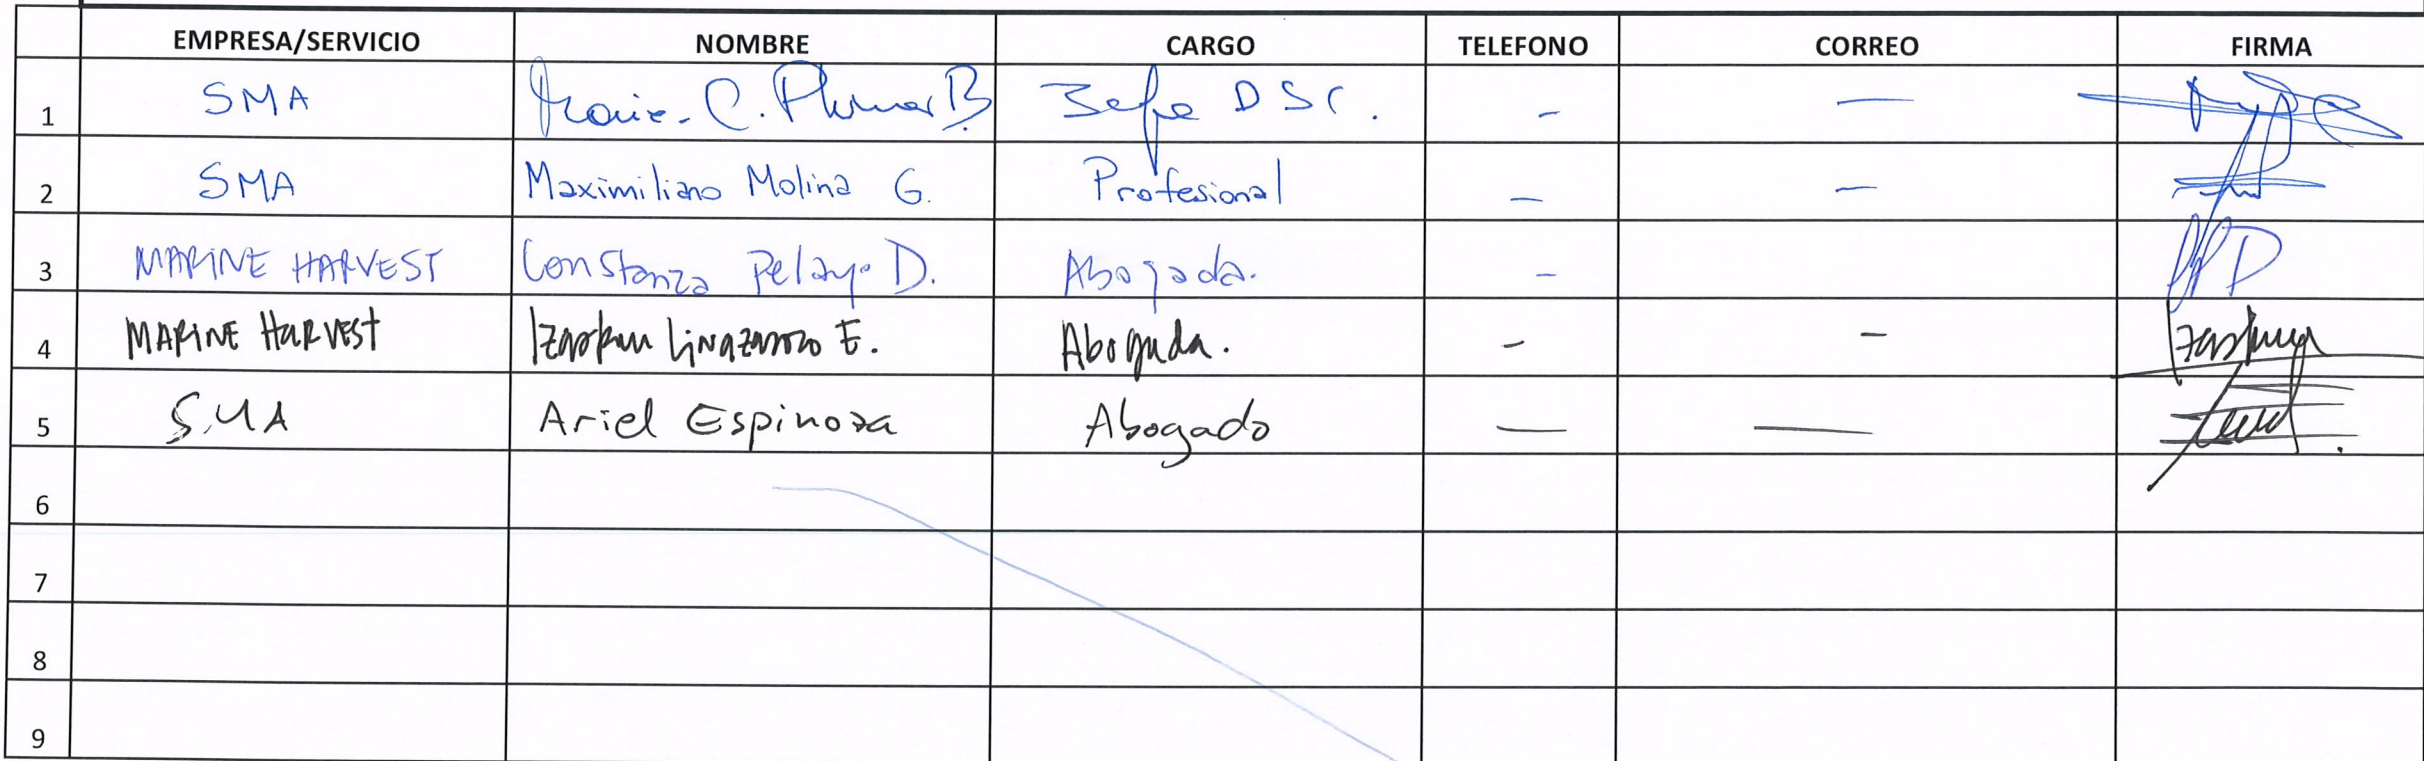 EMPRESA/SERVICIO NOMBRE CARGO TELEFONO CORREO FIRMA
1 SMA C. B. Jefe DSC. - -
2 SMA Maximiliano Molina G. Profesional - -
3 MARINE HARVEST Constanza Pelayo D. Abogada. -
4 MARINE HARVEST Izaskun Linazasoro E. Abogada. - -
5 SMA Ariel Espinoza Abogado - -
6
7
8
9